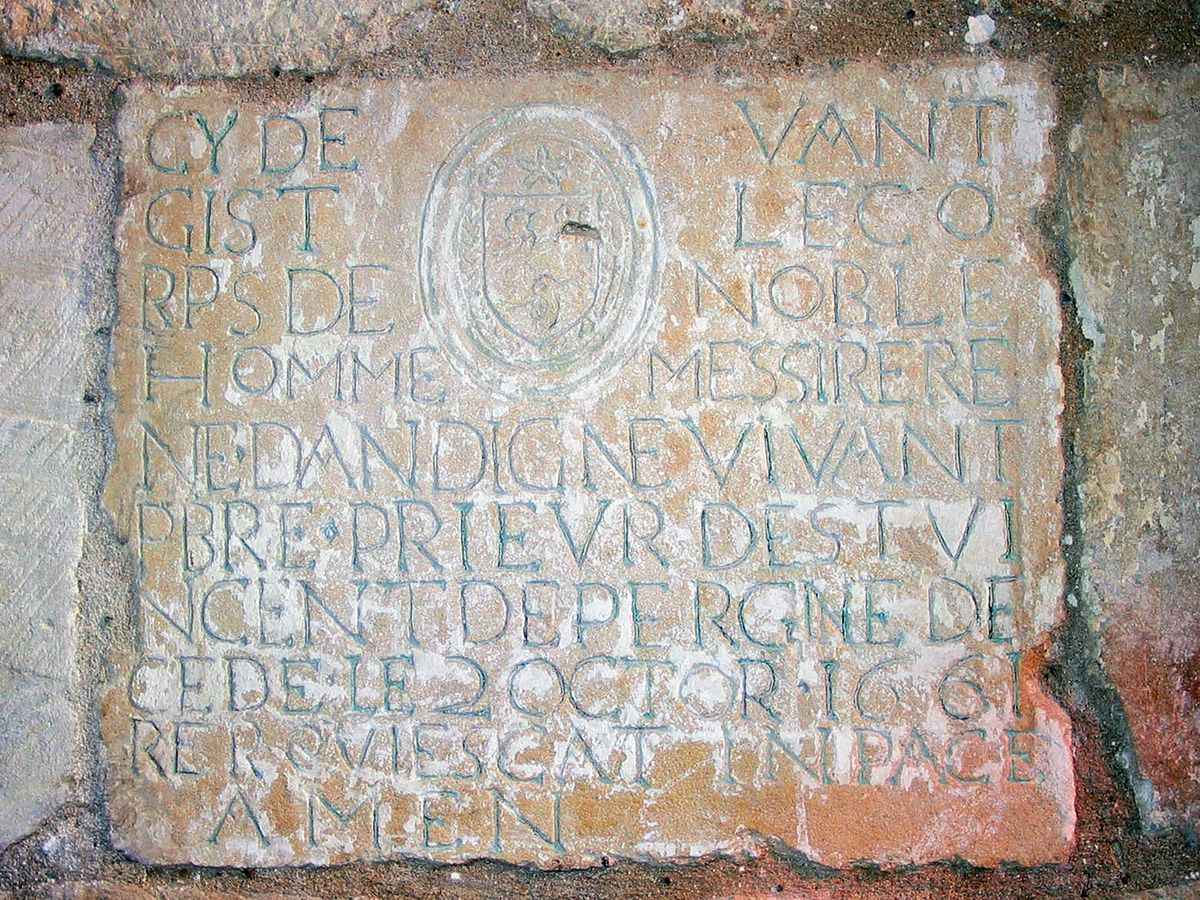 CY DE VANT
GIST LE CO
RPS DE NOBLE
HOMME MESSIRE RE
NE·DANDIGNE VIVANT
PBRE·PRIEVR DE ST VI
NCENT DE PERGNE DE
CEDE·LE 2 OCTOR·1661
RE RQVIESCAT IN PACE
AMEN